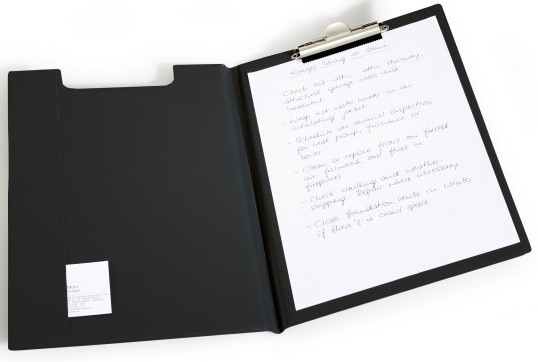 Energy Saving at Home
- Check out attic, attic stairway,
attached garage walls and
basement.
- Wrap hot water tanks in an
insulating jacket.
- Schedule an annual inspection
for heat pump, furnace or
boiler
- Clean or replace filters on forced
air furnaces, seal flues in
fireplaces
- Check caulking and weather-
stripping. Repair where necessary
- Close foundation vents in winter
if there's a crawl space.